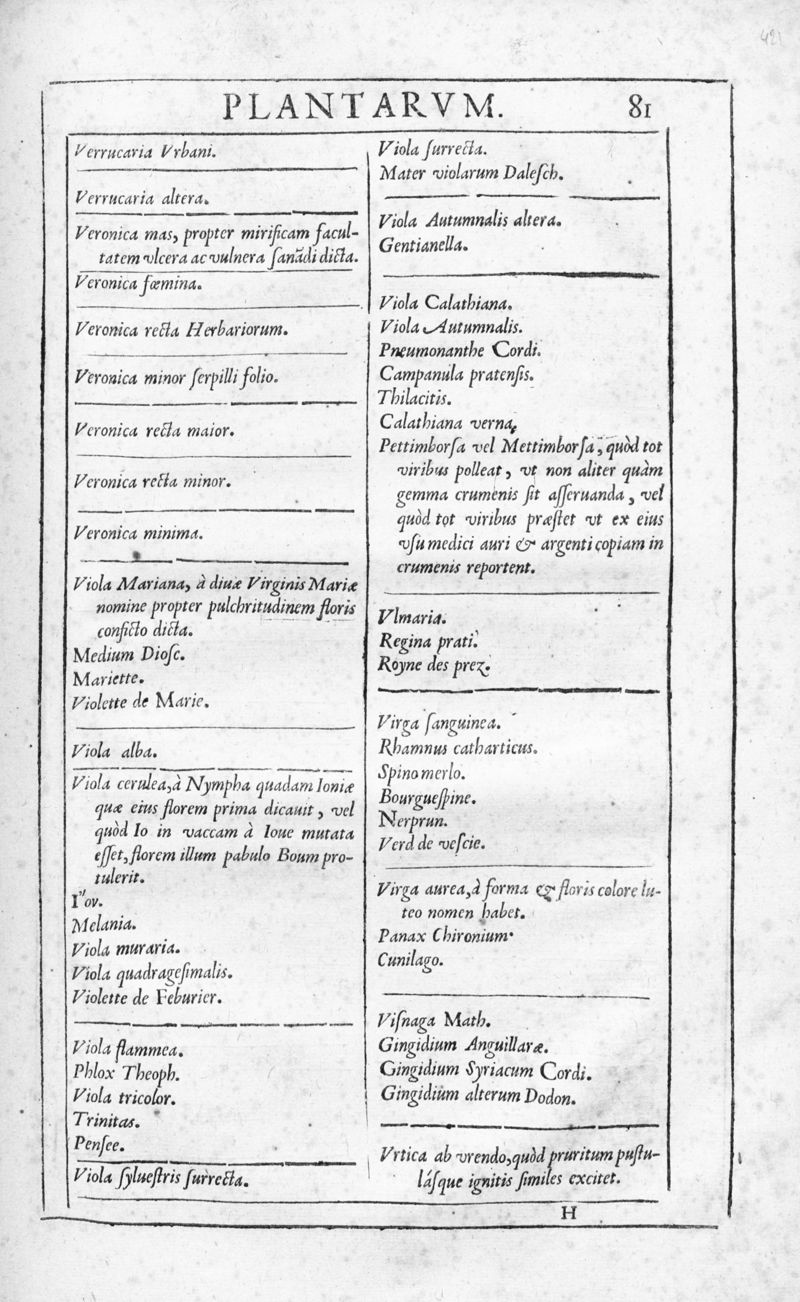 PLANTARVM. 81
Verrucaria Vrbani.
Verrucaria altera.
Veronica mas, propter mirificam facul-
tatem vlcera ac vulnera ſanādi dicta.
Veronica fœmina.
Veronica recta Herbariorum.
Veronica minor ſerpilli folio.
Veronica recta maior.
Veronica recta minor.
Veronica minima.
Viola Mariana, à diuæ Virginis Mariæ
nomine propter pulchritudinem floris
conficto dicta.
Medium Dioſc.
Mariette.
Violette de Marie.
Viola alba.
Viola cerulea, à Nympha quadam Ioniæ
quæ eius florem prima dicauit, vel
quòd Io in vaccam à Ioue mutata
eſſet, florem illum pabulo Boum pro-
tulerit.
Ἴον.
Melania.
Viola muraria.
Viola quadrageſimalis.
Violette de Feburier.
Viola flammea.
Phlox Theoph.
Viola tricolor.
Trinitas.
Penſee.
Viola ſylueſtris ſurrecta.
Viola ſurrecta.
Mater violarum Daleſch.
Viola Autumnalis altera.
Gentianella.
Viola Calathiana.
Viola Autumnalis.
Pneumonanthe Cordi.
Campanula pratenſis.
Thilacitis.
Calathiana verna.
Pettimborſa vel Mettimborſa, quòd tot
viribus polleat, vt non aliter quàm
gemma crumenis ſit aſſeruanda, vel
quòd tot viribus præſtet vt ex eius
vſu medici auri & argenti copiam in
crumenis reportent.
Vlmaria.
Regina prati.
Royne des prez.
Virga ſanguinea.
Rhamnus catharticus.
Spino merlo.
Bourgueſpine.
Nerprun.
Verd de veſcie.
Virga aurea, à forma & floris colore lu-
teo nomen habet.
Panax Chironium.
Cunilago.
Viſnaga Math.
Gingidium Anguillaræ.
Gingidium Syriacum Cordi.
Gingidium alterum Dodon.
Vrtica ab vrendo, quòd pruritum puſtu-
láſque ignitis ſimiles excitet.
H